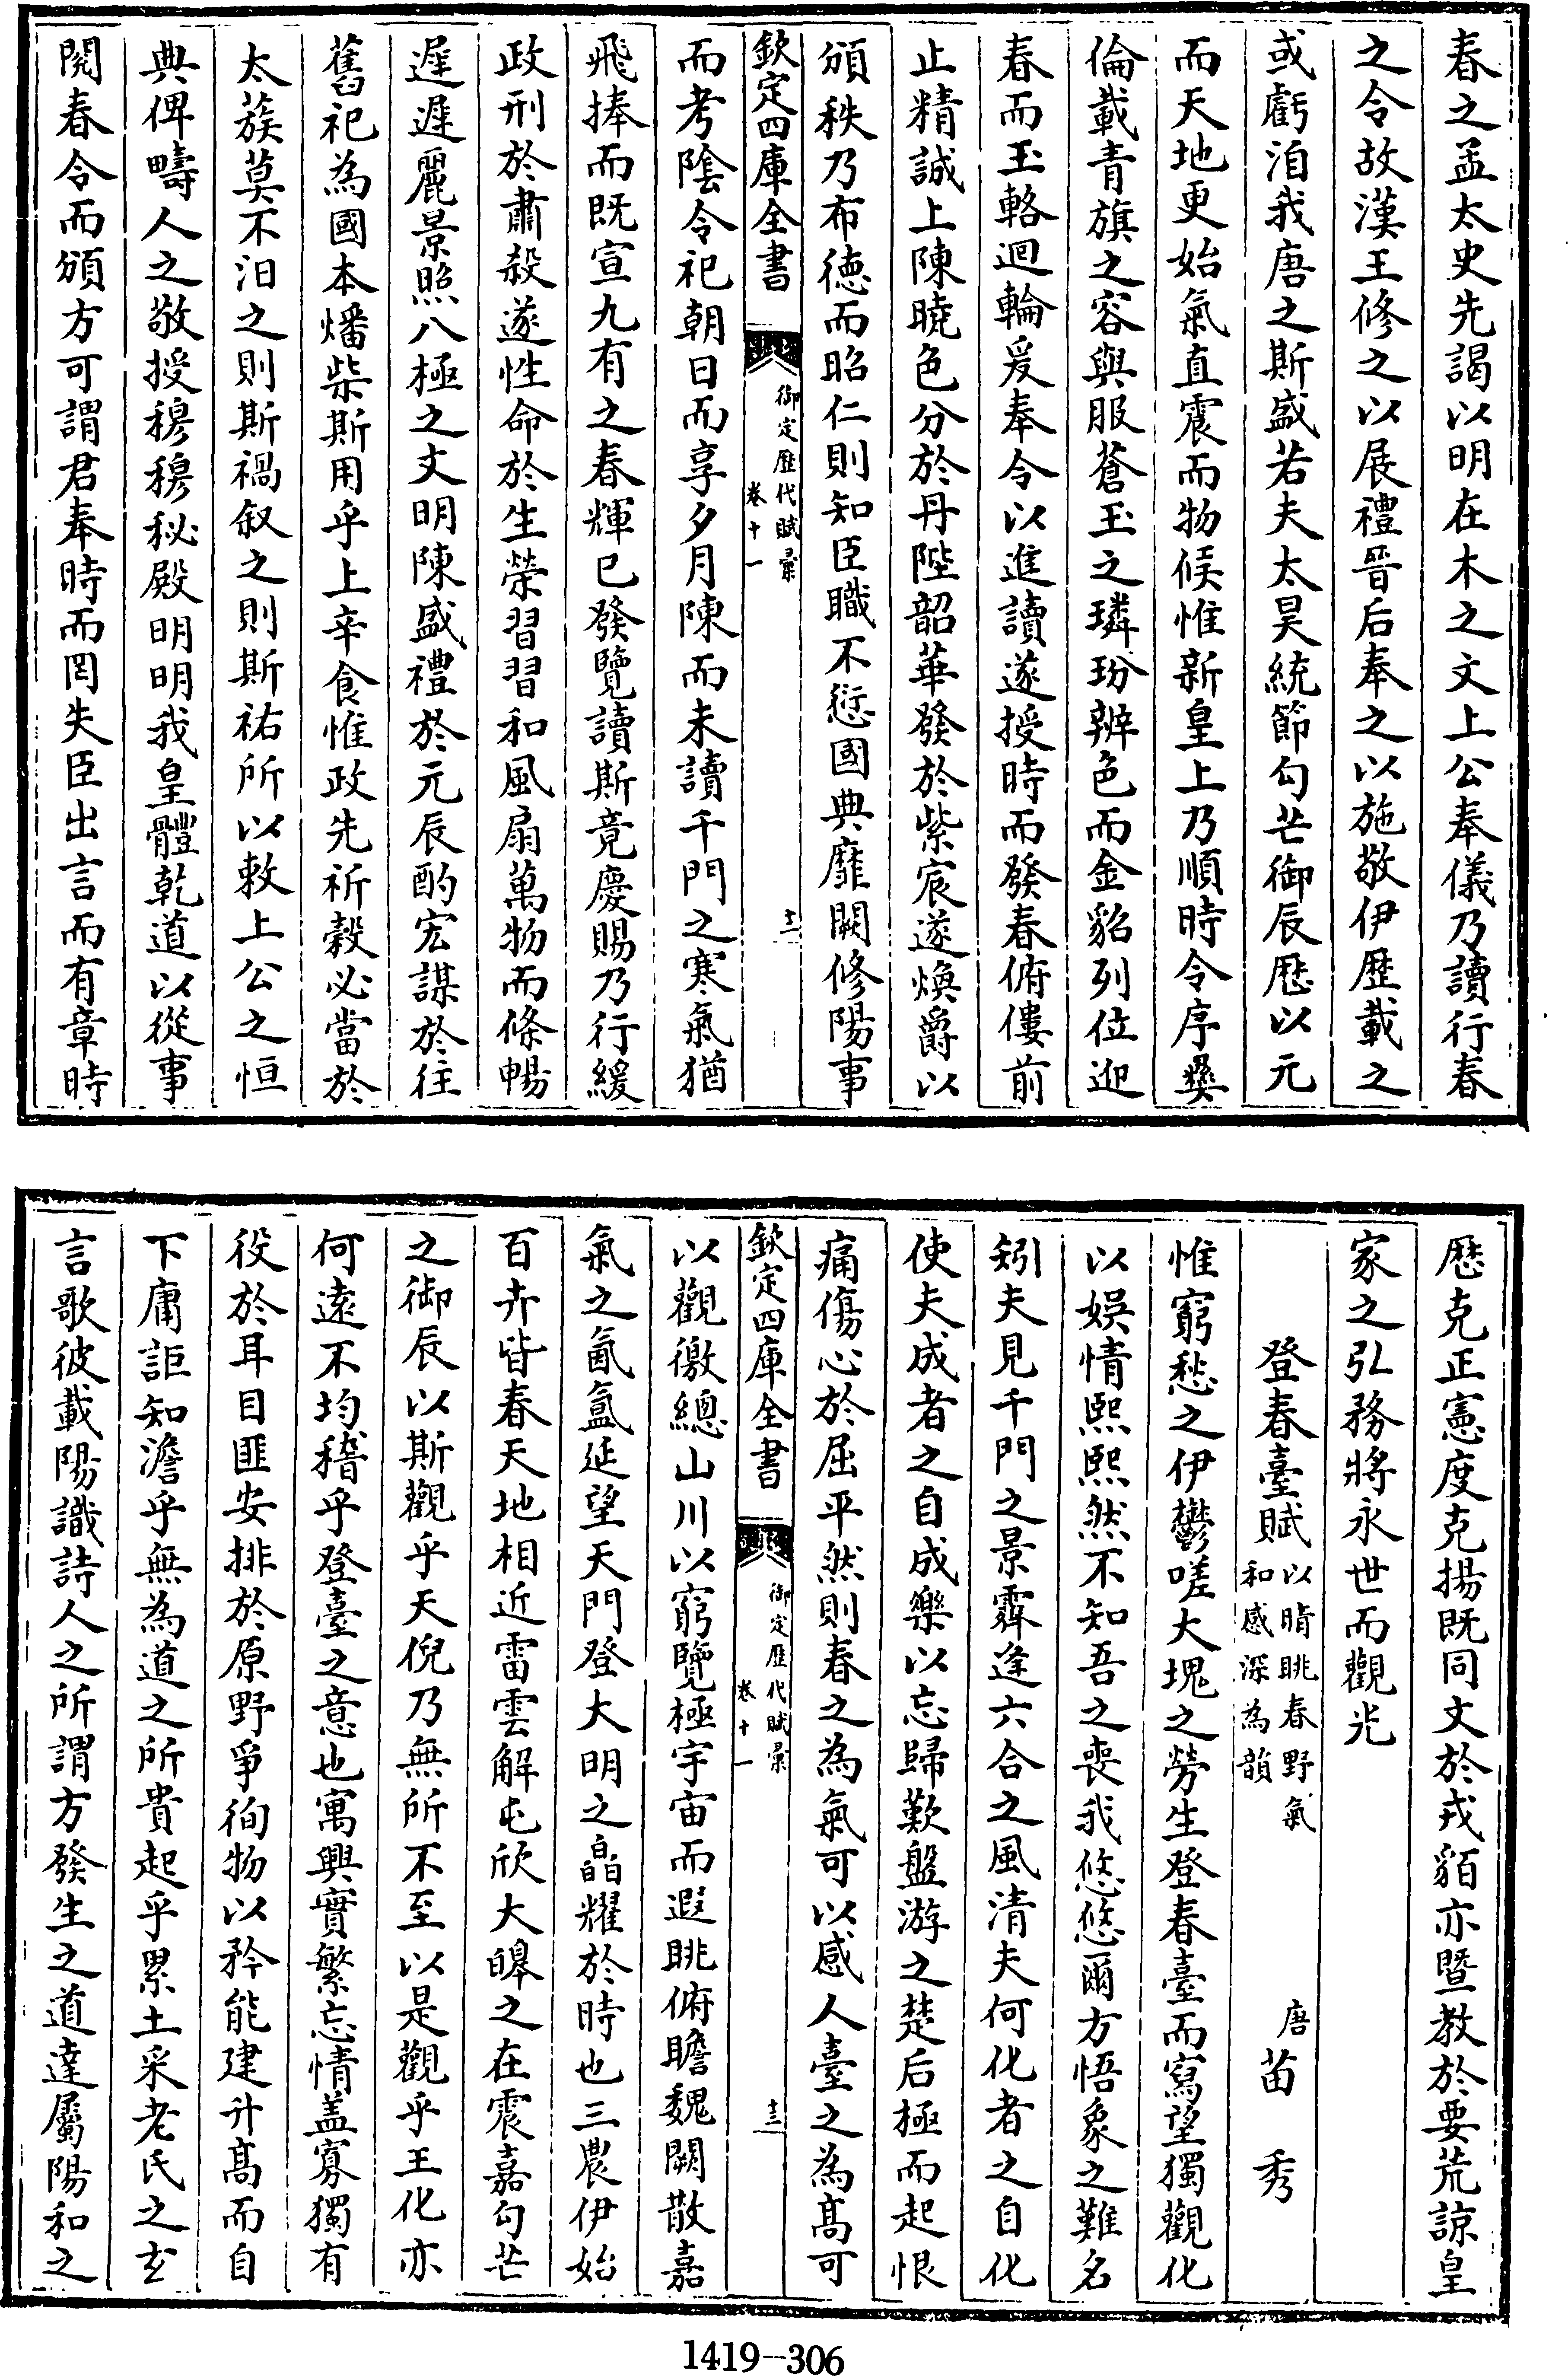 春之孟太史先謁以明在木之文上公奉儀乃讀行春
之令故漢王修之以展禮晉后奉之以施敬伊歴載之
或虧洎我唐之斯盛若夫太昊統節勾芒御辰厯以元
而天地更始氣直震而物候惟新皇上乃順時令序彝
倫載青旗之容與服蒼玉之璘玢辨色而金貂列位迎
春而玉輅迴輪爰奉令以進讀遂授時而發春俯僂前
止精誠上陳曉色分於丹陛韶華發於紫宸遂煥爵以
頒秩乃布徳而昭仁則知臣職不愆國典靡闕修陽事
欽定四庫全書
御定歴代賦彙
卷十一
十二
而考陰令祀朝日而享夕月陳而未讀千門之寒氣猶
飛捧而既宣九有之春輝已發覽讀斯竟慶賜乃行緩
政刑於肅殺遂性命於生榮習習和風扇萬物而條暢
遲遲麗景照八極之文明陳盛禮於元辰酌宏謀於往
舊祀為國本燔柴斯用乎上辛食惟政先祈穀必當於
太蔟莫不汨之則斯禍叙之則斯祐所以敕上公之恒
典俾疇人之敬授穆穆秘殿明明我皇體乾道以從事
閱春令而頒方可謂君奉時而罔失臣出言而有章時
厯克正憲度克揚既同文於戎貊亦曁教於要荒諒皇
家之弘務將永世而觀光
登春臺賦 以晴眺春野氣和感深為韻 唐 苗秀
惟窮愁之伊鬱嗟大塊之勞生登春臺而寫望獨觀化
以娯情熙熙然不知吾之喪我悠悠爾方悟象之難名
矧夫見千門之景霽逢六合之風清夫何化者之自化
使夫成者之自成樂以忘歸歎盤游之楚后極而起恨
痛傷心於屈平然則春之為氣可以感人臺之為髙可
欽定四庫全書
御定歴代賦彙
卷十一
十三
以觀徼總山川以窮覽極宇宙而遐眺俯瞻魏闕散嘉
氣之氤氲延望天門登大明之皛耀於時也三農伊始
百卉皆春天地相近雷雲解屯欣大皡之在震嘉勾芒
之御辰以斯觀乎天倪乃無所不至以是觀乎王化亦
何遠不均稽乎登臺之意也寓興實繁忘情盖寡獨有
役於耳目匪安排於原野爭徇物以矜能建升髙而自
下庸詎知澹乎無為道之所貴起乎累土采老氏之玄
言歌彼載陽識詩人之所謂方發生之道達屬陽和之
1419-306